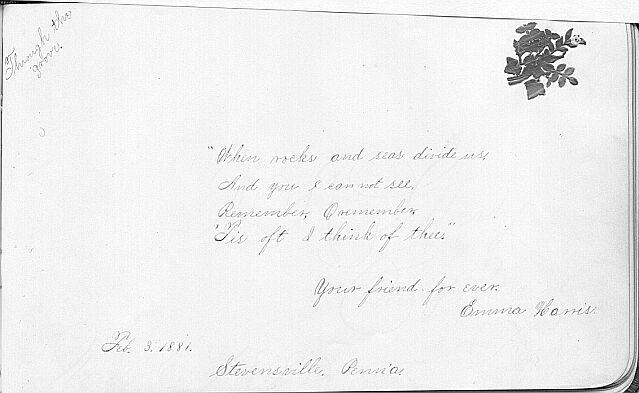 Through the
grove.
"When rocks and seas divide us,
And you I can not see,
Remember, O remember
'Tis oft I think of thee."
Your friend for ever.
Emma Harris.
Feb. 3. 1881.
Stevensville, Penn'a,